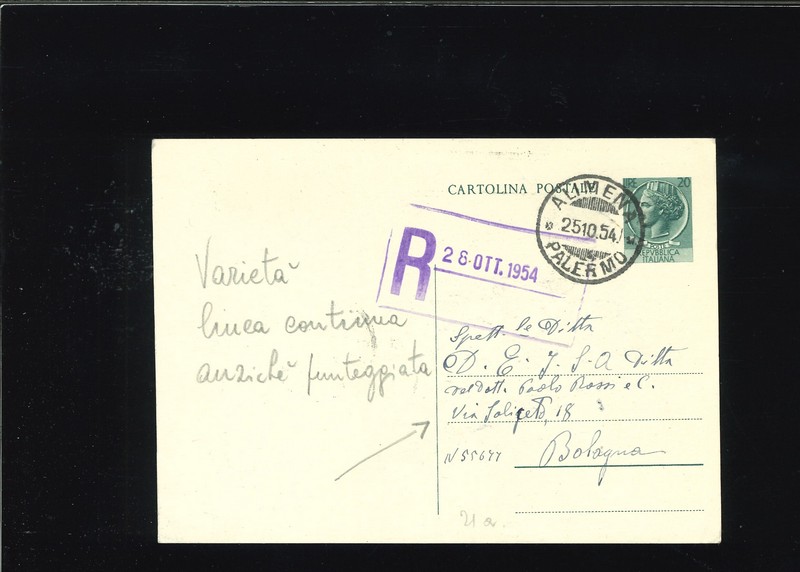 CARTOLINA POSTALE
20
POSTE
REPVBBLICA
ITALIANA
ALIMENA
25.10.54
PALERMO
R 28.OTT.1954
Varietà
linea continua
anziché punteggiata
Spett.le Ditta
D. E. I. S. A Ditta
Paolo Rossi e C.
Via Saliceto, 18
N 55677
Bologna
21 a.